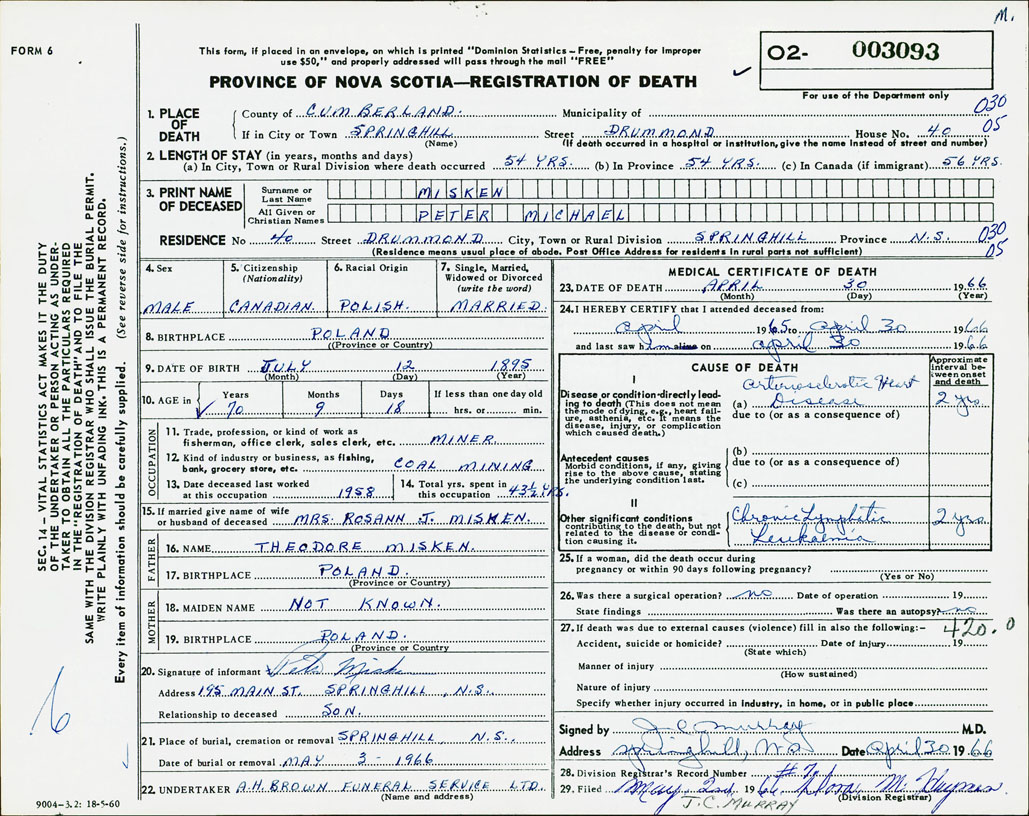 M.
FORM 6
This form, if placed in an envelope, on which is printed "Dominion Statistics – Free, penalty for improper
use $50," and properly addressed will pass through the mail "FREE"
PROVINCE OF NOVA SCOTIA—REGISTRATION OF DEATH
02- 003093
For use of the Department only
SEC. 14 – VITAL STATISTICS ACT MAKES IT THE DUTY
OF THE UNDERTAKER OR PERSON ACTING AS UNDER-
TAKER TO OBTAIN ALL THE PARTICULARS REQUIRED
IN THE "REGISTRATION OF DEATH" AND TO FILE THE
SAME WITH THE DIVISION REGISTRAR WHO SHALL ISSUE THE BURIAL PERMIT.
WRITE PLAINLY WITH UNFADING INK. THIS IS A PERMANENT RECORD.
Every item of information should be carefully supplied. (See reverse side for instructions.)
1. PLACE OF DEATH County of CUMBERLAND. Municipality of 030
If in City or Town SPRINGHILL Street DRUMMOND House No. 40 05
(Name) (If death occurred in a hospital or institution, give the name instead of street and number)
2. LENGTH OF STAY (in years, months and days)
(a) In City, Town or Rural Division where death occurred 54 YRS. (b) In Province 54 YRS. (c) In Canada (if immigrant) 56 YRS.
3. PRINT NAME OF DECEASED Surname or Last Name MISKEN
All Given or Christian Names PETER MICHAEL
RESIDENCE No 40 Street DRUMMOND City, Town or Rural Division SPRINGHILL Province N.S. 030
(Residence means usual place of abode. Post Office Address for residents in rural parts not sufficient) 05
4. Sex MALE
5. Citizenship (Nationality) CANADIAN.
6. Racial Origin POLISH.
7. Single, Married, Widowed or Divorced (write the word) MARRIED.
8. BIRTHPLACE POLAND
((Province or Country)
9. DATE OF BIRTH JULY 12 1895
(Month) (Day) (Year)
10. AGE in Years Months Days If less than one day old
70 9 18 hrs. or min.
OCCUPATION
11. Trade, profession, or kind of work as
fisherman, office clerk, sales clerk, etc. MINER
12. Kind of industry or business, as fishing,
bank, grocery store, etc. COAL MINING
13. Date deceased last worked
at this occupation 1958
14. Total yrs. spent in
this occupation 43½ YRS.
15. If married give name of wife
or husband of deceased MRS. ROSANN J. MISKEN.
FATHER
16. NAME THEODORE MISKEN.
17. BIRTHPLACE POLAND.
(Province or Country)
MOTHER
18. MAIDEN NAME NOT KNOWN.
19. BIRTHPLACE POLAND.
(Province or Country)
20. Signature of informant
Address 195 MAIN ST. SPRINGHILL, N.S.
Relationship to deceased SON.
21. Place of burial, cremation or removal SPRINGHILL, N.S.
Date of burial or removal MAY 3 - 1966
22. UNDERTAKER A.H. BROWN FUNERAL SERVICE LTD.
(Name and address)
6
9004-3.2: 18-5-60
MEDICAL CERTIFICATE OF DEATH
23. DATE OF DEATH APRIL 30 1966
(Month) (Day) (Year)
24. I HEREBY CERTIFY that I attended deceased from:
april 1965 to april 30 1966
and last saw him alive on april 30 1966
CAUSE OF DEATH Approximate interval between onset and death
I
Disease or condition directly lead-
ing to death (This does not mean
the mode of dying, e.g., heart fail-
ure, asthenia, etc. It means the
disease, injury, or complication
which caused death.)
Arteriosclerotic Heart
(a) Disease 2 yrs.
due to (or as a consequence of)
Antecedent causes
Morbid conditions, if any, giving
rise to the above cause, stating
the underlying condition last.
(b)
due to (or as a consequence of)
(c)
II
Other significant conditions
contributing to the death, but not
related to the disease or condi-
tion causing it.
Chronic Lymphatic
Leukaemia 2 yrs.
25. If a woman, did the death occur during
pregnancy or within 90 days following pregnancy?
(Yes or No)
26. Was there a surgical operation? no Date of operation 19
State findings Was there an autopsy? no
27. If death was due to external causes (violence) fill in also the following:- 420.0
Accident, suicide or homicide? Date of injury 19
(State which)
Manner of injury
(How sustained)
Nature of injury
Specify whether injury occurred in industry, in home, or in public place
Signed by J.C. Murray M.D.
Address Springhill, N.S. Date April 30 1966
28. Division Registrar's Record Number
29. Filed May 2nd 1966 M.
J.C. MURRAY (Division Registrar)